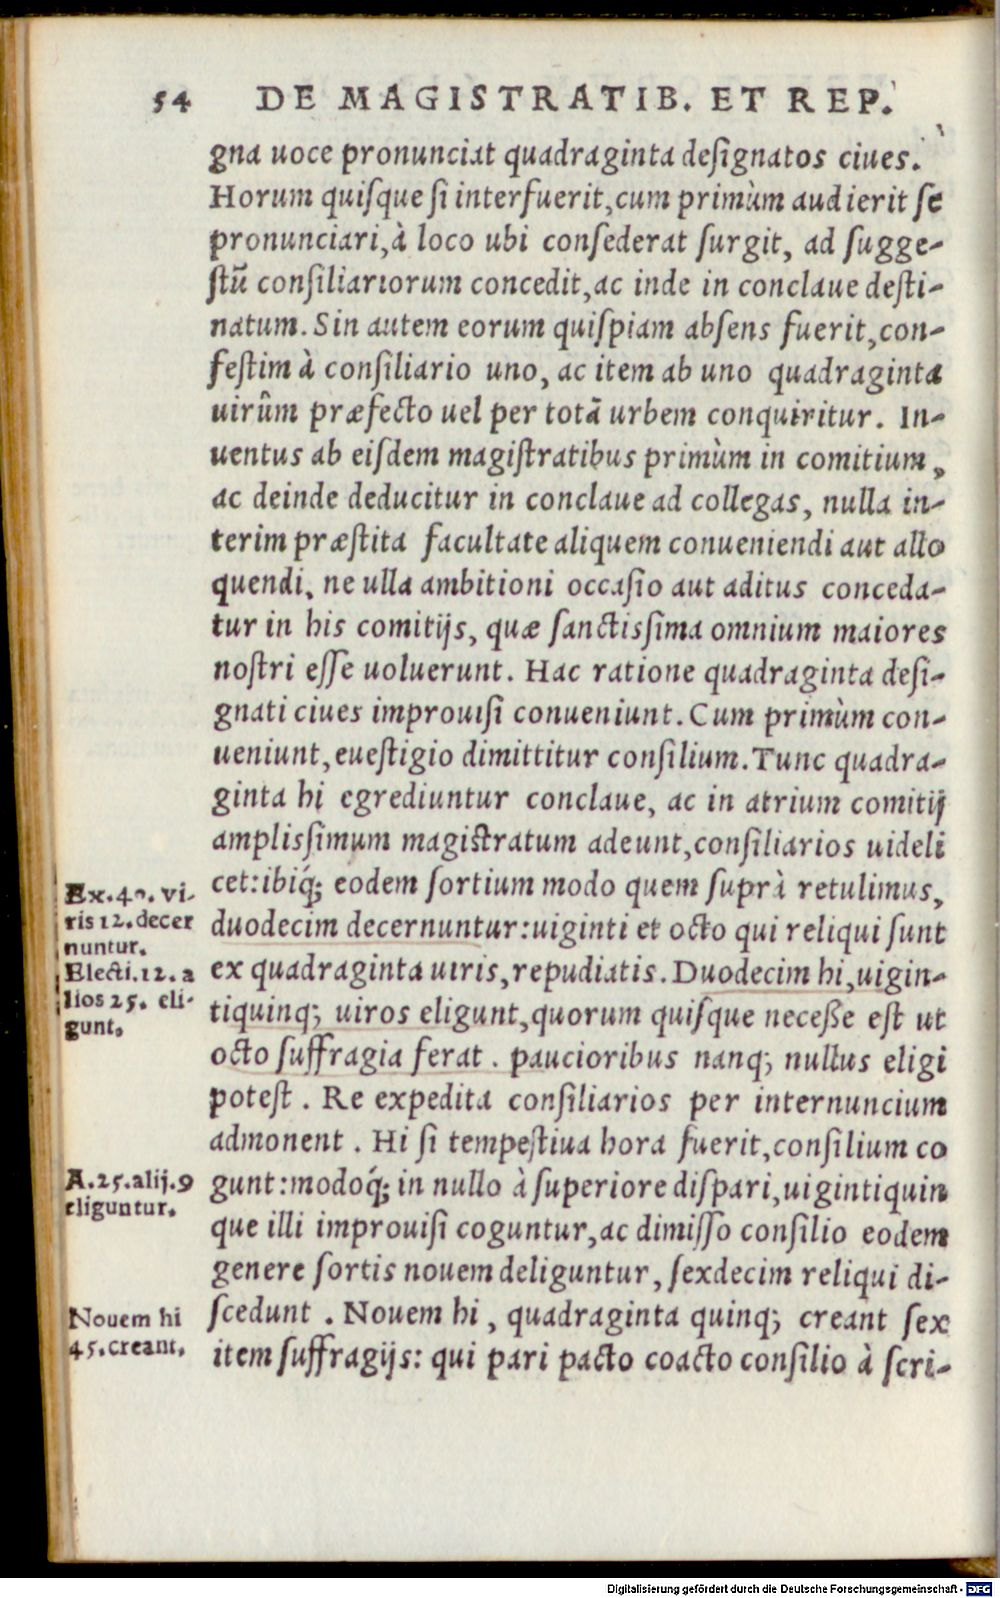 54 DE MAGISTRATIB. ET REP.
gna uoce pronunciat quadraginta deſignatos ciues.
Horum quiſque ſi interfuerit, cum primùm audierit ſe
pronunciari, à loco ubi conſederat ſurgit, ad ſugge-
ſtũ conſiliariorum concedit, ac inde in conclaue deſti-
natum. Sin autem eorum quiſpiam abſens fuerit, con-
feſtim à conſiliario uno, ac item ab uno quadraginta
uirûm præfecto uel per totã urbem conquiritur. In-
uentus ab eiſdem magiſtratibus primùm in comitium,
ac deinde deducitur in conclaue ad collegas, nulla in-
terim præſtita facultate aliquem conueniendi aut allo
quendi, ne ulla ambitioni occaſio aut aditus conceda-
tur in his comitijs, quæ ſanctisſima omnium maiores
noſtri eſſe uoluerunt. Hac ratione quadraginta deſi-
gnati ciues improuiſi conueniunt. Cum primùm con-
ueniunt, eueſtigio dimittitur conſilium. Tunc quadra-
ginta hi egrediuntur conclaue, ac in atrium comitij
amplisſimum magiſtratum adeunt, conſiliarios uideli
cet: ibiq́; eodem ſortium modo quem ſuprà retulimus,
duodecim decernuntur: uiginti et octo qui reliqui ſunt
ex quadraginta uiris, repudiatis. Duodecim hi, uigin-
tiquinq; uiros eligunt, quorum quiſque neceße eſt ut
octo ſuffragia ferat. paucioribus nanq; nullus eligi
poteſt. Re expedita conſiliarios per internuncium
admonent. Hi ſi tempeſtiua hora fuerit, conſilium co
gunt: modoq́; in nullo à ſuperiore diſpari, uigintiquin
que illi improuiſi coguntur, ac dimiſſo conſilio eodem
genere ſortis nouem deliguntur, ſexdecim reliqui di-
ſcedunt. Nouem hi, quadraginta quinq; creant ſex
item ſuffragijs: qui pari pacto coacto conſilio à ſcri-
Ex. 40. vi-
ris 12. decer
nuntur.
Electi. 12. a
lios 25. eli-
gunt.
A. 25. alij. 9
eliguntur.
Nouem hi
45. creant.
Digitalisierung gefördert durch die Deutsche Forschungsgemeinschaft - DFG